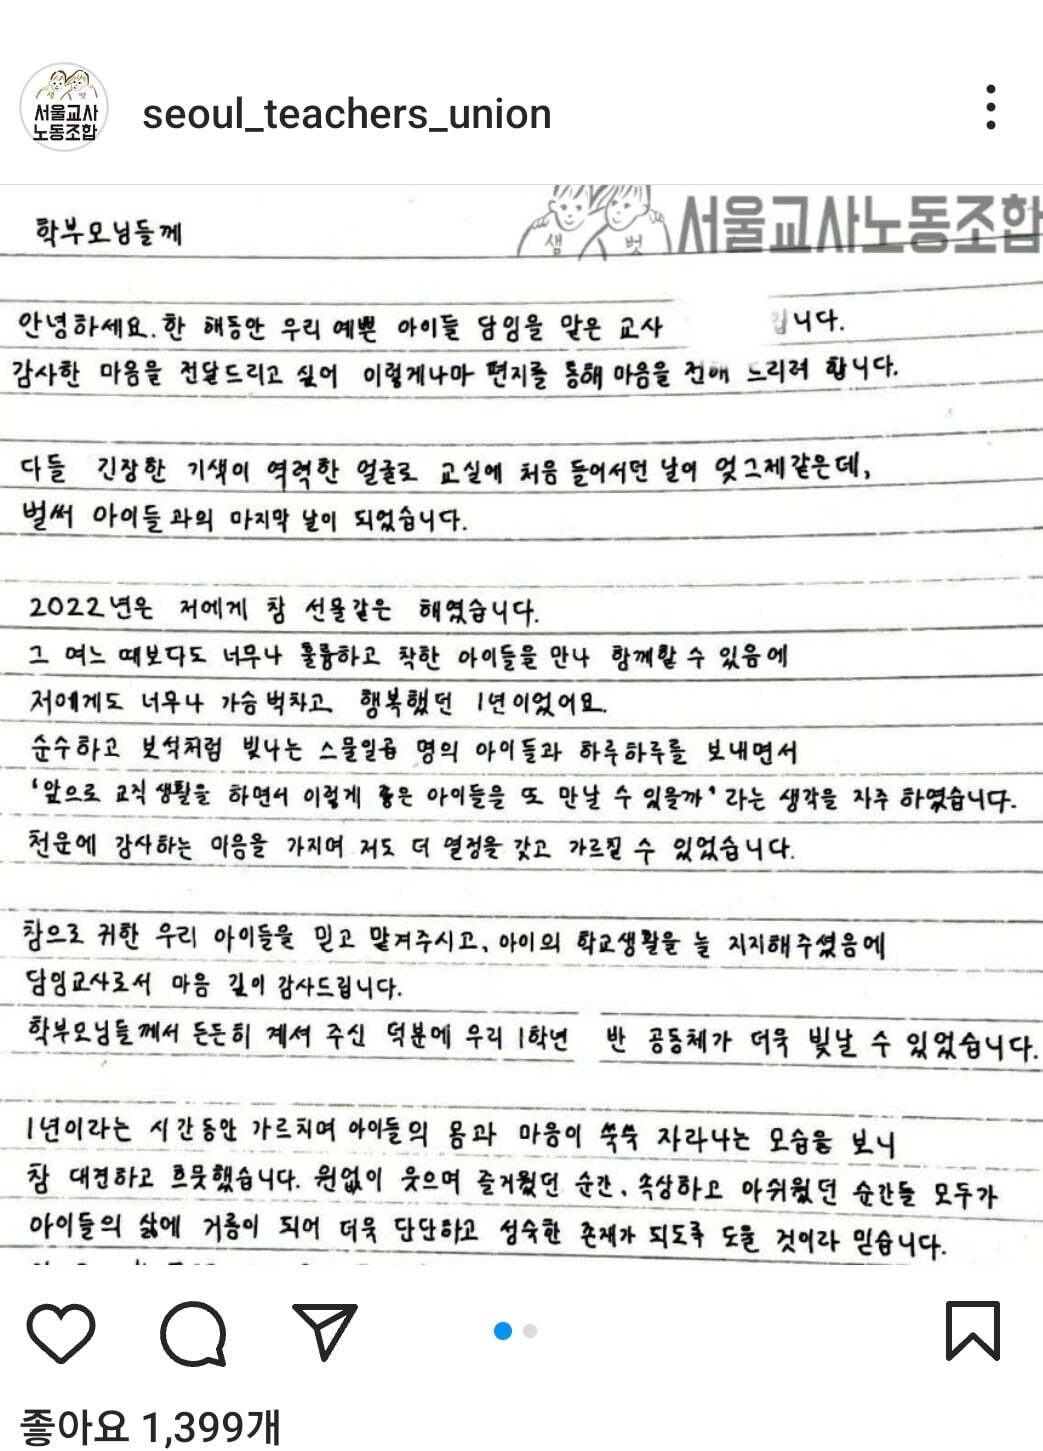 샘 벗
서울교사
노동조합
seoul_teachers_union
샘 벗
서울교사노동조합
학부모님들께
안녕하세요. 한 해동안 우리 예쁜 아이들 담임을 맡은 교사 입니다.
감사한 마음을 전달드리고 싶어 이렇게나마 편지를 통해 마음을 전해 드리려 합니다.
다들 긴장한 기색이 역력한 얼굴로 교실에 처음 들어서던 날이 엊그제같은데,
벌써 아이들과의 마지막 날이 되었습니다.
2022년은 저에게 참 선물같은 해였습니다.
그 여느 때보다도 너무나 훌륭하고 착한 아이들을 만나 함께할 수 있음에
저에게도 너무나 가슴 벅차고 행복했던 1년이었어요.
순수하고 보석처럼 빛나는 스물일곱 명의 아이들과 하루하루를 보내면서
'앞으로 교직 생활을 하면서 이렇게 좋은 아이들을 또 만날 수 있을까' 라는 생각을 자주 하였습니다.
천운에 감사하는 마음을 가지며 저도 더 열정을 갖고 가르칠 수 있었습니다.
참으로 귀한 우리 아이들을 믿고 맡겨주시고, 아이의 학교생활을 늘 지지해주셨음에
담임교사로서 마음 깊이 감사드립니다.
학부모님들께서 든든히 계셔 주신 덕분에 우리 1학년 반 공동체가 더욱 빛날 수 있었습니다.
1년이라는 시간동안 가르치며 아이들의 몸과 마음이 쑥쑥 자라나는 모습을 보니
참 대견하고 흐뭇했습니다. 원없이 웃으며 즐거웠던 순간, 속상하고 아쉬웠던 순간들 모두가
아이들의 삶에 거름이 되어 더욱 단단하고 성숙한 존재가 되도록 도울 것이라 믿습니다.
좋아요 1,399개